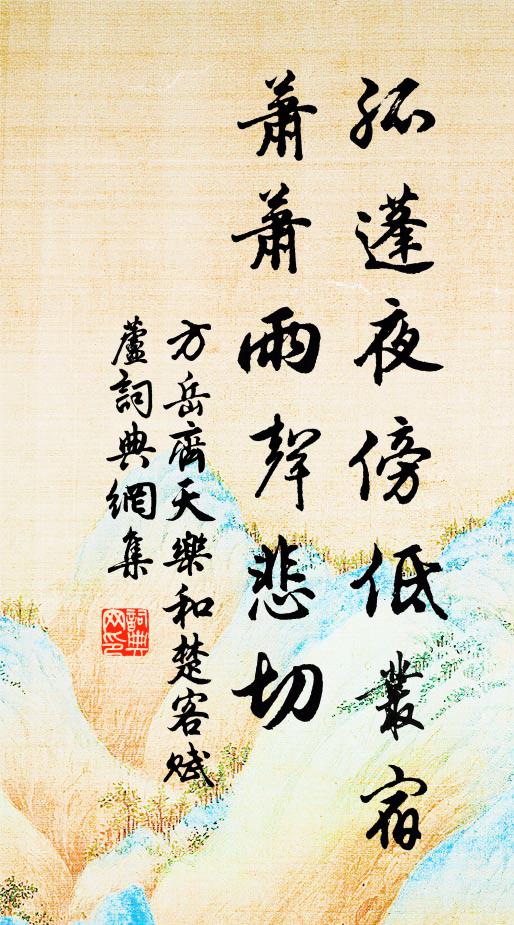 孤蓬夜傍低叢宿
蕭蕭雨聲悲切
方岳齊天樂和楚客賦
蘆詞典網集
詞典